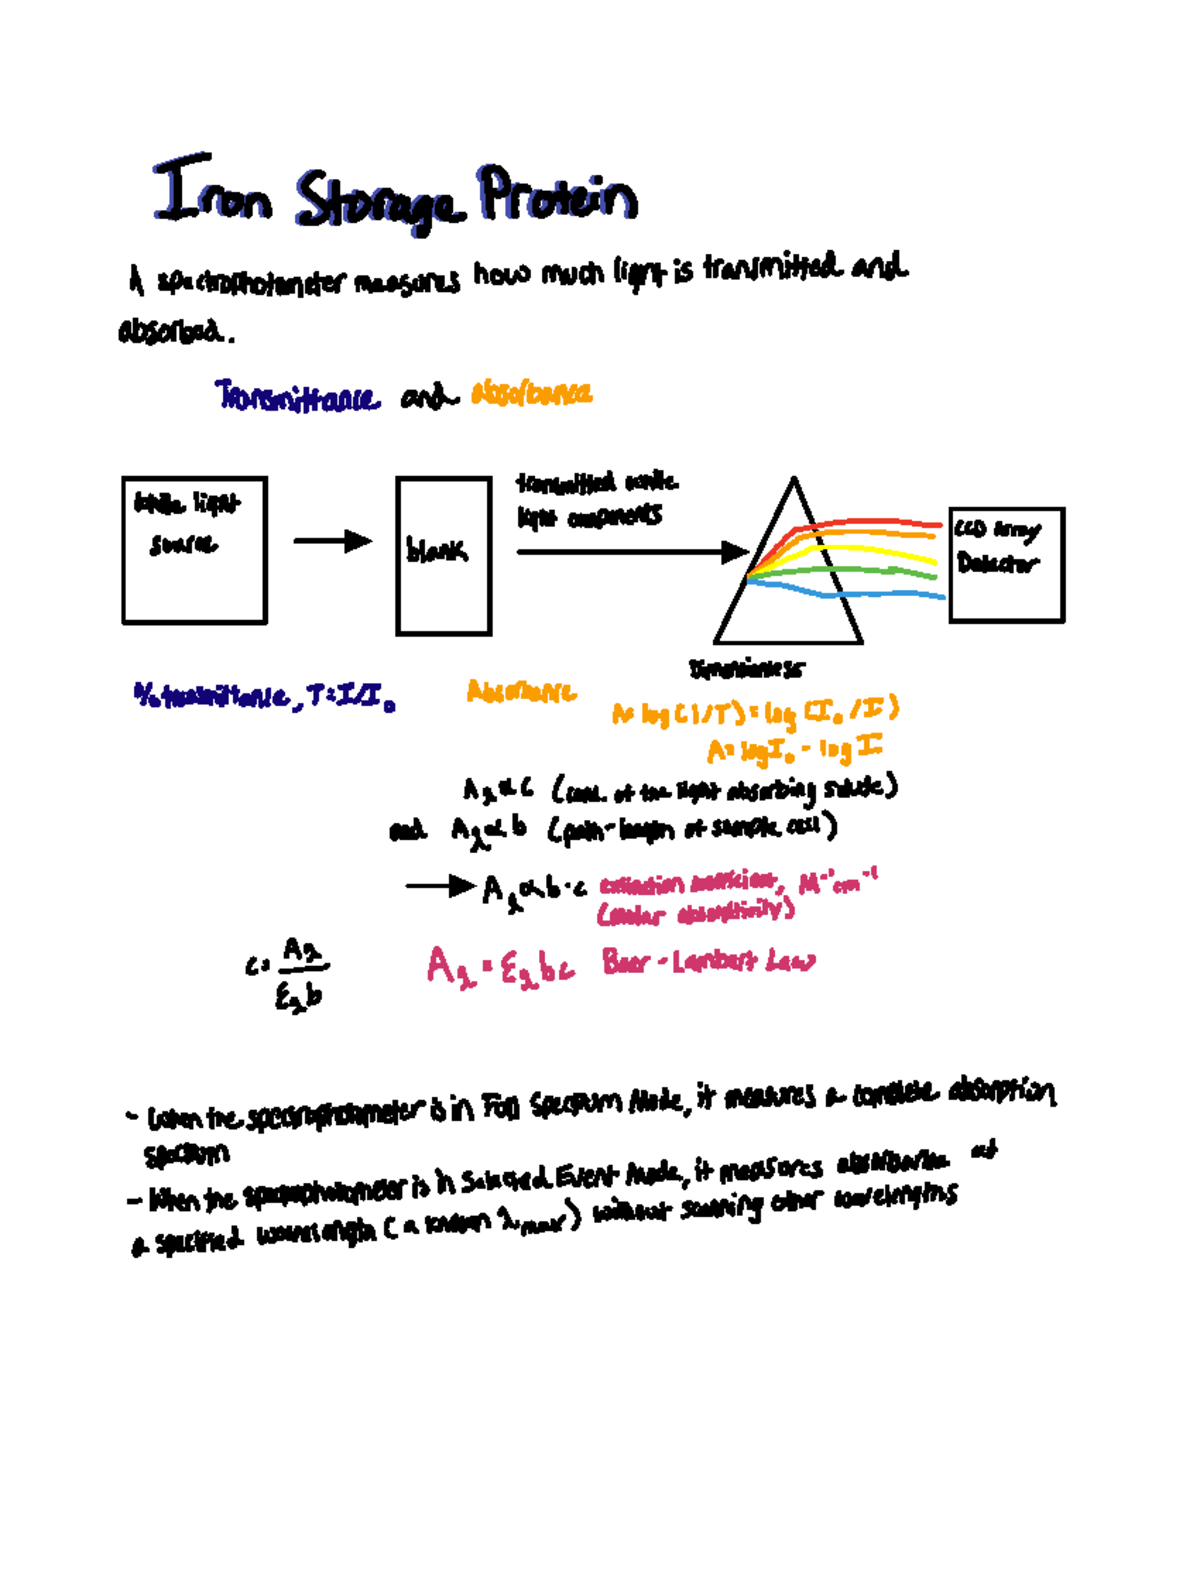 Iron Storage Protein
A spectrophotometer measures how much light is transmitted and
absorbed.
Transmittance and absorbance
White light
source
blank
transmitted white
light components
CCD Array
Detector
Dimensionless
% transmittance, T = I/I₀
Absorbance
A = log(1/T) = log (I₀/I)
A = log I₀ - log I
A_λ ∝ c (conc. of the light absorbing solute)
and A_λ ∝ b (path-length of sample cell)
A_λ ∝ b·c extinction coefficient, M⁻¹cm⁻¹
(molar absorptivity)
c = A_λ / ε_λ b
A_λ = ε_λ b c Beer-Lambert Law
- When the spectrophotometer is in Full Spectrum Mode, it measures a complete absorption
spectrum
- When the spectrophotometer is in Selected Event Mode, it measures absorbance at
a specified wavelength (a known λmax) without scanning other wavelengths